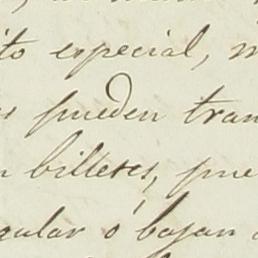 ito especial, m
es pueden tran
n billetes, pue
gular ó bajan a